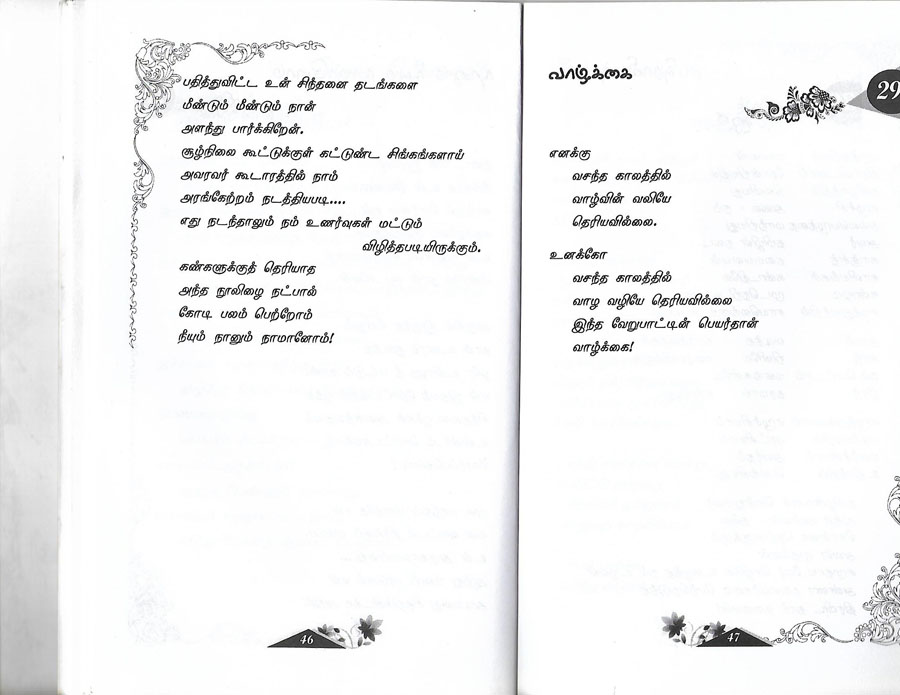 பதித்துவிட்ட உன் சிந்தனை தடங்களை
மீண்டும் மீண்டும் நான்
அளந்து பார்க்கிறேன்.
சூழ்நிலை கூட்டுக்குள் கட்டுண்ட சிங்கங்களாய்
அவரவர் கூடாரத்தில் நாம்
அரங்கேற்றம் நடத்தியபடி....
எது நடந்தாலும் நம் உணர்வுகள் மட்டும்
விழித்தபடியிருக்கும்.
கண்களுக்குத் தெரியாத
அந்த நூலிழை நட்பால்
கோடி பலம் பெற்றோம்
நீயும் நானும் நாமானோம்!
46
வாழ்க்கை
29
எனக்கு
வசந்த காலத்தில்
வாழ்வின் வலியே
தெரியவில்லை.
உனக்கோ
வசந்த காலத்தில்
வாழ வழியே தெரியவில்லை
இந்த வேறுபாட்டின் பெயர்தான்
வாழ்க்கை!
47